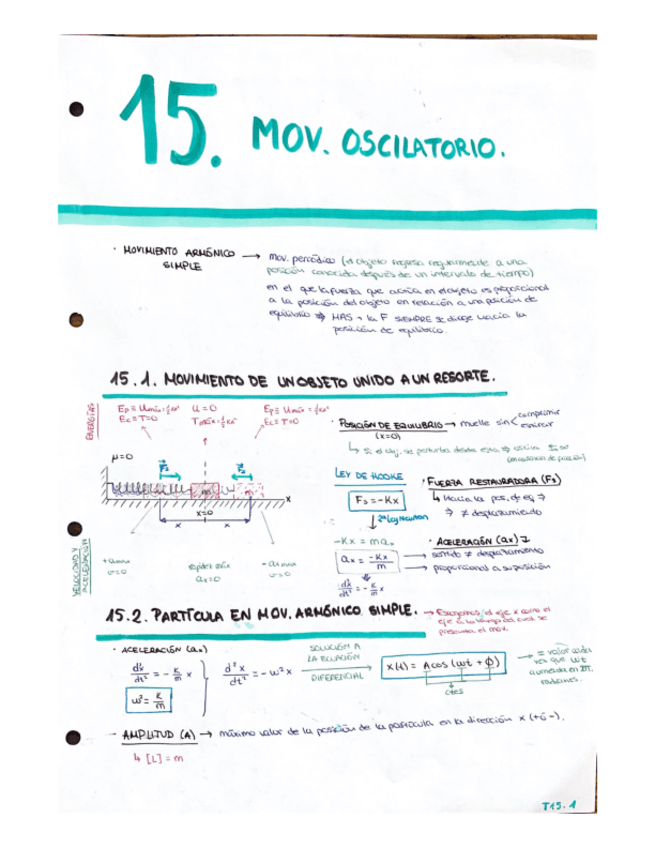 15. MOV. OSCILATORIO.
· MOVIMIENTO ARMÓNICO SIMPLE → mov. periódico (el objeto regresa regularmente a una
posición conocida después de un intervalo de tiempo)
en el que la fuerza que actúa en el objeto es proporcional
a la posición del objeto en relación a una posición de
equilibrio ⇒ MAS → la F SIEMPRE se dirige hacia la
posición de equilibrio.
15.1. MOVIMIENTO DE UN OBJETO UNIDO A UN RESORTE.
ENERGÍAS
U = 0
μ=0
x=0
x
x
x
VELOCIDAD Y ACELERACIÓN
v=0
rapidez máx
aₓ=0
v=0
· POSICIÓN DE EQUILIBRIO → muelle sin < comprimir
estirar
(x=0)
LEY DE HOOKE
Fs = -Kx
↓ 2ª Ley Newton
-Kx = maₓ
aₓ = -Kx / m
· FUERZA RESTAURADORA (Fs)
↳ Hacia la pos. de eq ⇒
⇒ ≠ desplazamiento
· ACELERACIÓN (aₓ)
→ sentido ≠ desplazamiento
→ proporcional a su posición
15.2. PARTÍCULA EN MOV. ARMÓNICO SIMPLE. → Escogemos el eje x como el
eje a lo largo del cual se
presenta el mov.
· ACELERACIÓN (aₓ)
dx/dt² = - K/m x
d²x/dt² = -w²x
w² = K/m
SOLUCIÓN A
LA ECUACIÓN
DIFERENCIAL
x(t) = A cos (wt + Φ)
ctes
→ = valor cada
vez que wt
aumenta en 2π
radianes.
- AMPLITUD (A) → máximo valor de la posición de la partícula en la dirección x (+ó-).
↳ [L] = m
T15.1